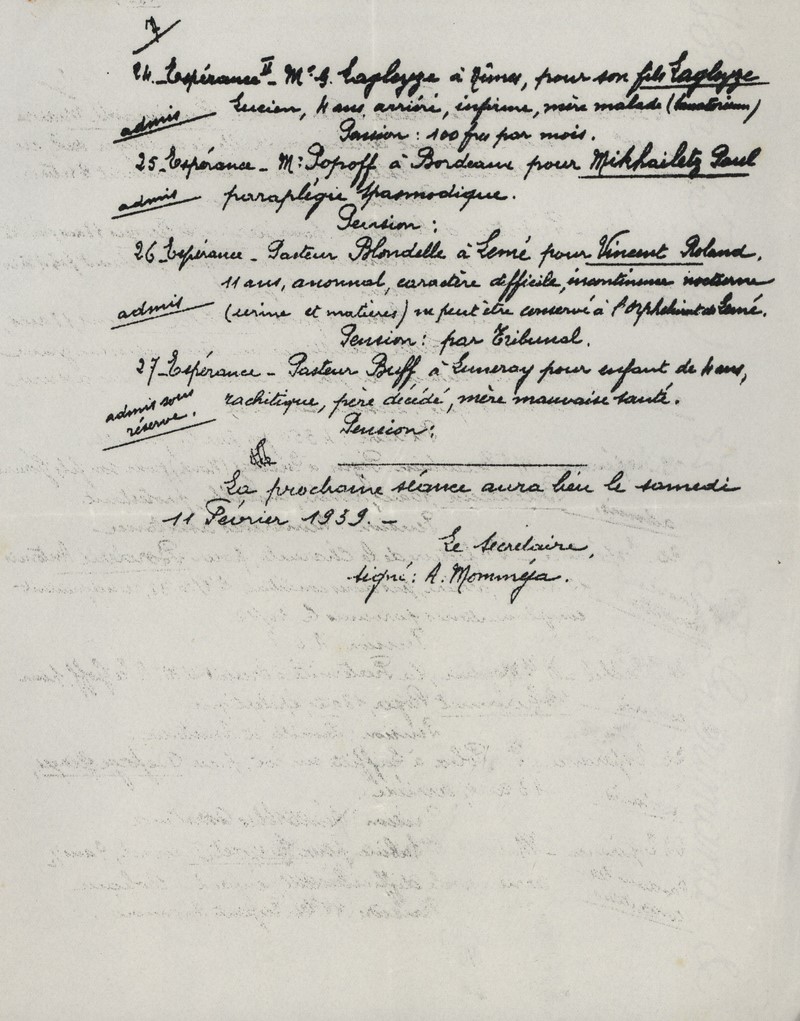 7
24_ Espérance II _ Mr G. Lagleyze à Nîmes, pour son fils Lagleyze
Lucien, 4 ans, arriéré, infirme, mère malade (Sanatorium)
admis
Pension : 100 frcs par mois.
25_ Espérance _ Mr Popoff à Bordeaux pour Mikhailetz Paul
admis paraplégie spasmodique.
Pension :
26_ Espérance _ Pasteur Blondelle à Lemé pour Vincent Roland,
11 ans, anormal, caractère difficile, incontinence nocturne
admis (urine et matières) ne peut être conservé à l'Orphelinat de Lemé.
Pension : par Tribunal.
27_ Espérance _ Pasteur Buff à Luneray pour enfant de 4 ans,
admis sous réserve. rachitique, père décédé, mère mauvaise santé.
Pension :
La prochaine séance aura lieu le samedi
11 Février 1939. _
Le Secrétaire,
signé : A. Momméja.